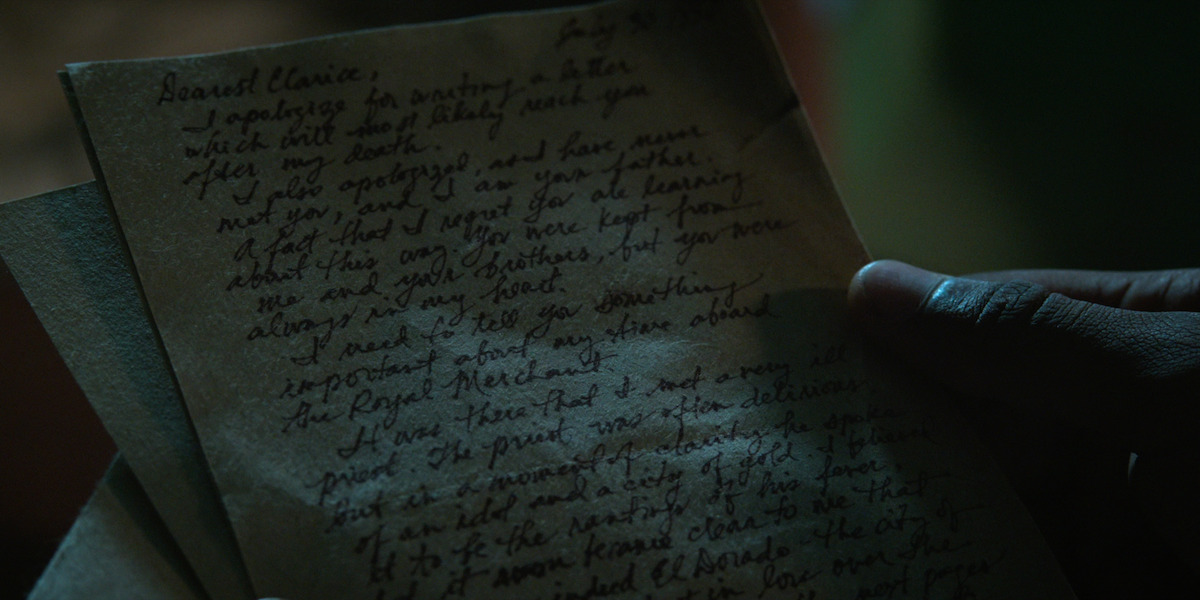 July 3
Dearest Clarice,
I apologize for writing a letter
which will most likely reach you
after my death.
I also apologized, as I have never
met you, and I am your father.
A fact that I regret you are learning
about this way. You were kept from
me and your brothers, but you were
always in my heart.
I need to tell you something
important about my time aboard
the Royal Merchant.
It was there that I met a very ill
priest. The priest was often delirious.
But in a moment of clarity he spoke
of an idol and a city of gold. I believed
it to be the rantings of his fever,
but it soon became clear to me that
indeed El Dorado - the city of
in love over the
next pages